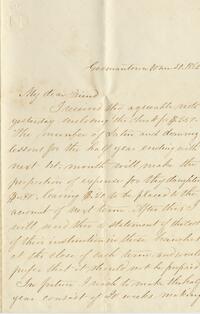 Germantown
My dear Friend
I received thy agreeable note
yesterday enclosing the
The number of Latin and drawing
lessons for the half year ending with
next 1st month will make the
proportion of expense for thy daughter
leaving $20 to be placed to the
account of next term. After this I
will send thee a statement of the cost
of their instruction in these branches
at the close of each term and would
prefer that it should not be prepaid
In future I wish to make the half
year consist of 20 weeks, making